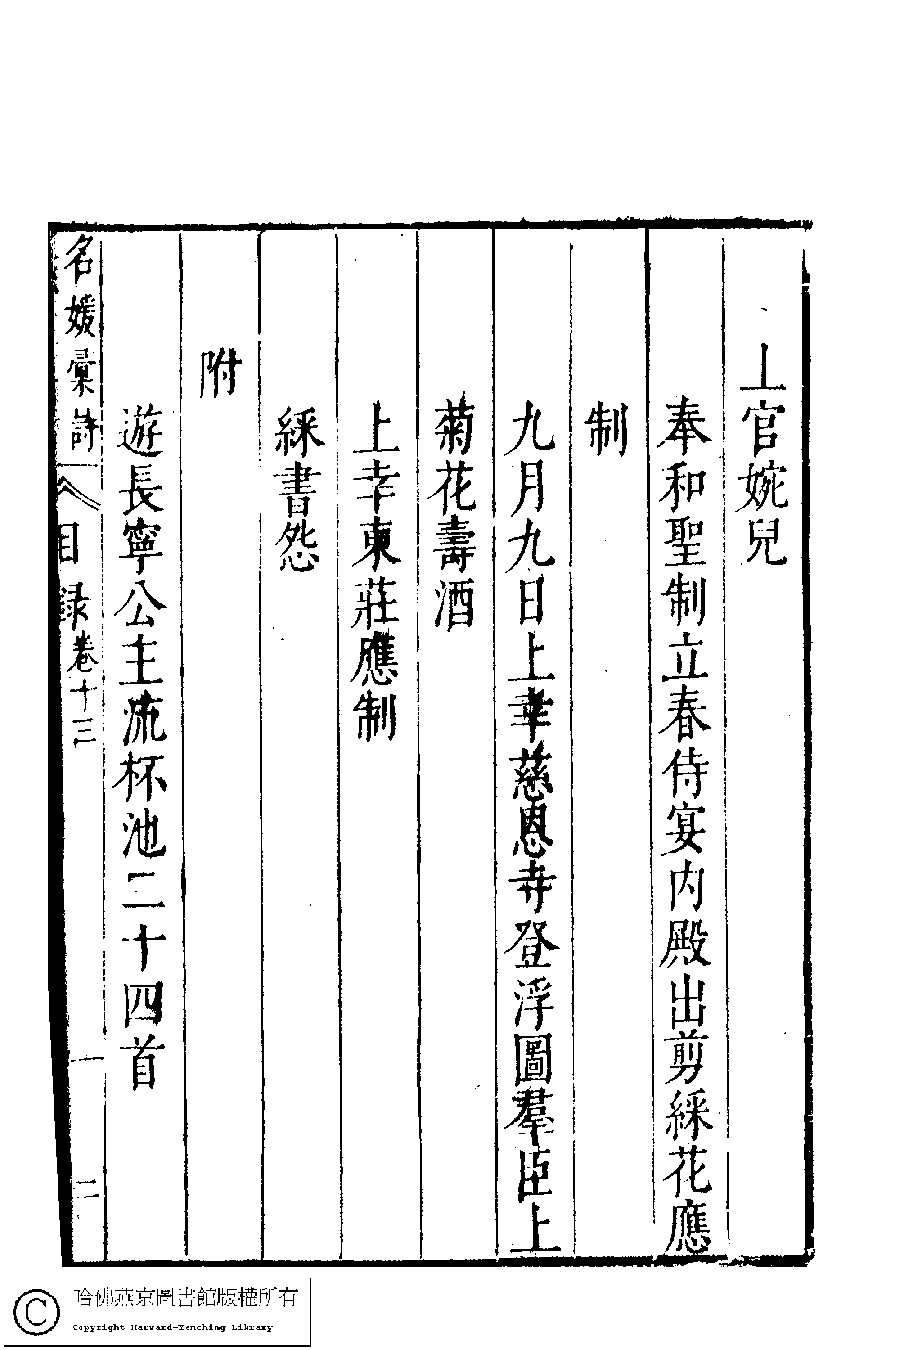 上官婉兒
奉和聖制立春侍宴內殿出剪綵花應
制
九月九日上幸慈恩寺登浮圖羣臣上
菊花壽酒
上幸東莊應制
綵書怨
附
遊長寧公主流杯池二十四首
名媛彙詩 目錄 卷十三 一 二
哈佛燕京圖書館版權所有
Copyright Harvard-Yenching Library